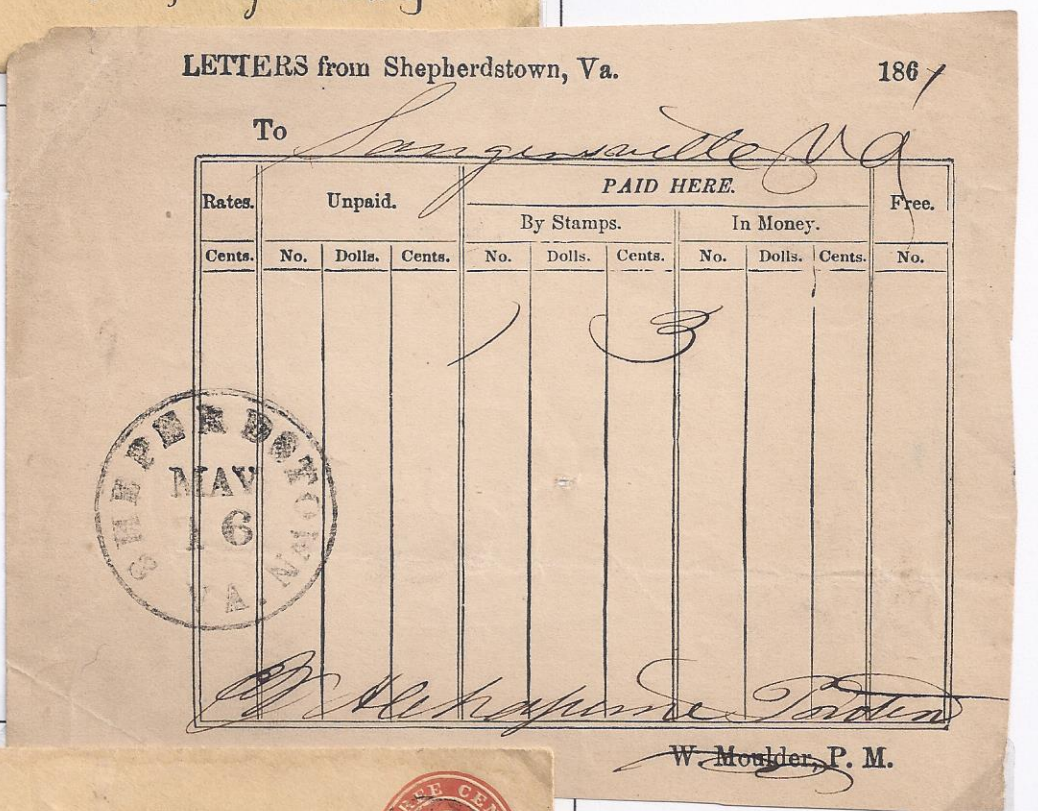 LETTERS from Shepherdstown, Va. 1861
To Sangersville Va
Rates. Unpaid. PAID HERE. Free.
By Stamps. In Money.
Cents. No. Dolls. Cents. No. Dolls. Cents. No. Dolls. Cents. No.
1 3
SHEPHERDSTOWN
MAY
16
VA.
W. Moulder, P. M.
REE CEN